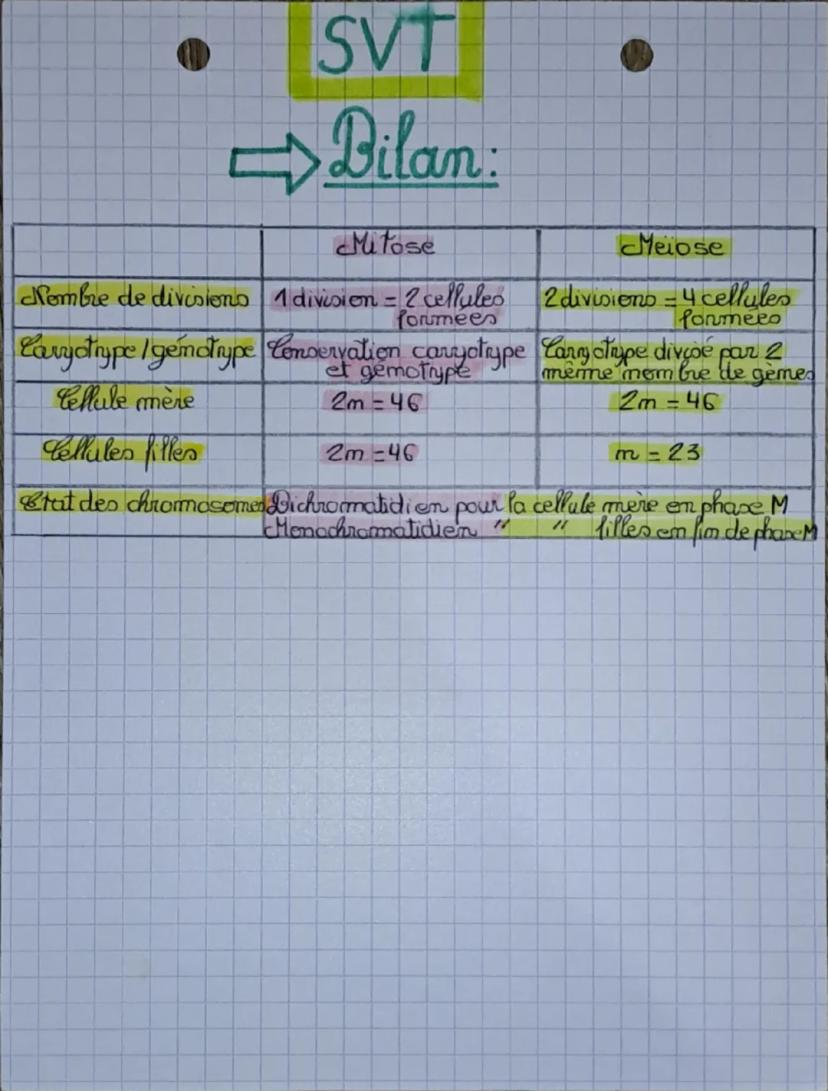 SVT
⇒ Bilan:
Mitose Meiose
Nombre de divisions 1 division = 2 cellules formées 2 divisions = 4 cellules formées
Caryotype/génotype Conservation caryotype et génotype Caryotype divisé par 2 même nombre de gènes
Cellule mère 2n = 46 2n = 46
Cellules filles 2n = 46 n = 23
Etat des chromosomes Dichromatidien pour la cellule mère en phase M
Monochromatidien " " filles en fin de phase M